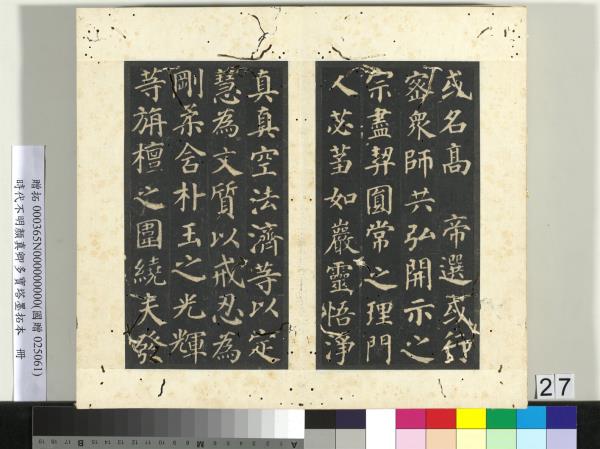 或名高 帝選或行
密衆師共弘開示之
宗盡契圓常之理門
人苾蒭如巖靈悟淨
真真空法濟等以定
慧為文質以戒忍為
剛柔含朴玉之光輝
等旃檀之圍繞夫發
贈拓 000365N000000000(國贈 025061)
時代不明顏真卿多寶塔墨拓本 冊
27